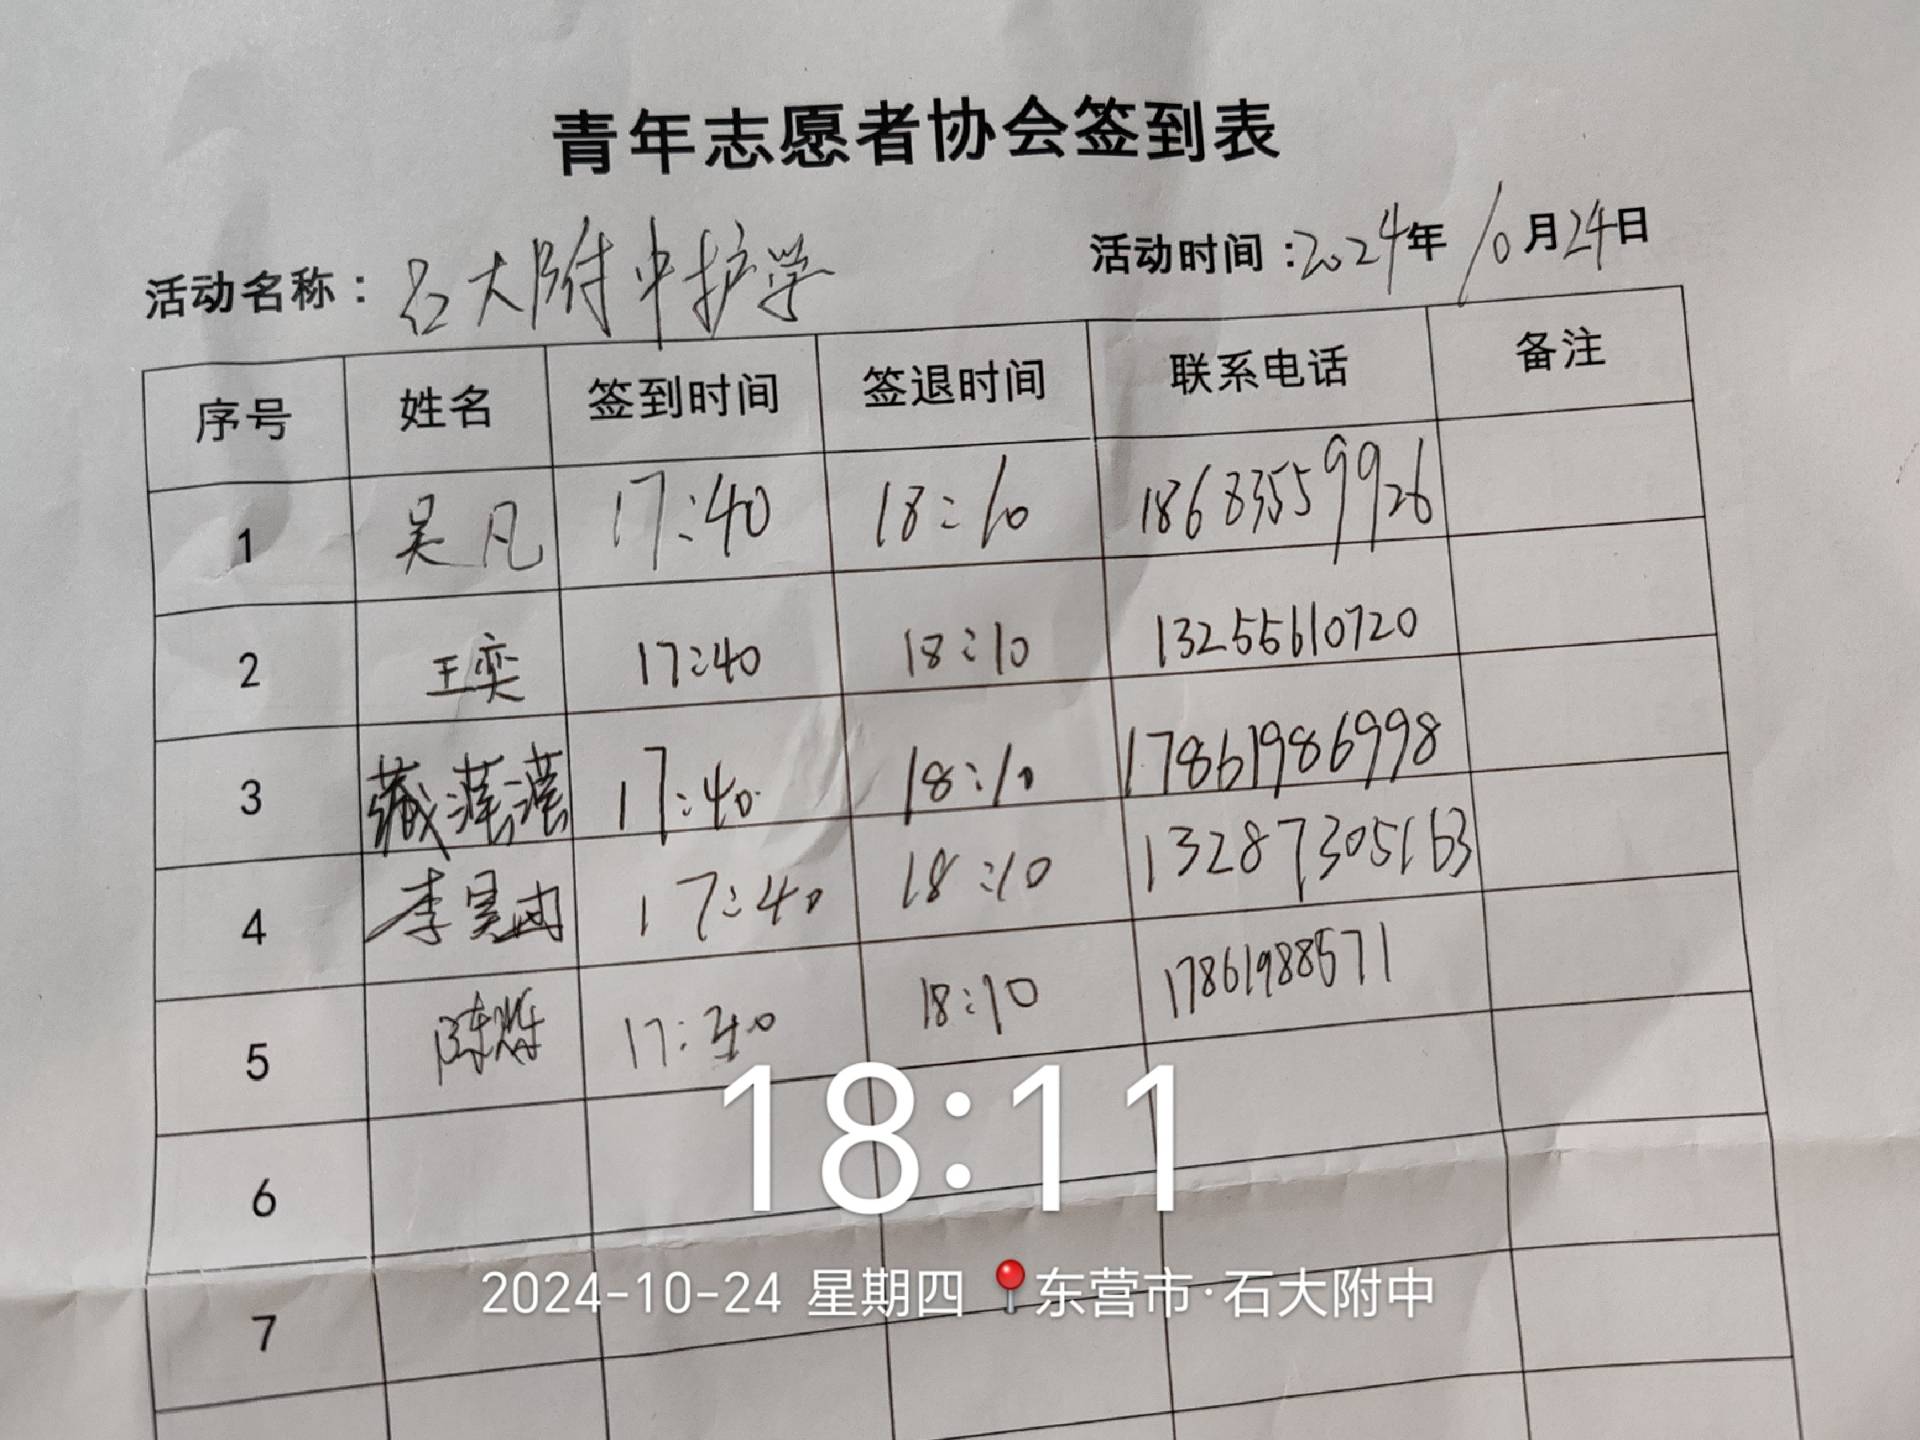 青年志愿者协会签到表
活动名称：石大附中护学 活动时间：2024年10月24日
序号 姓名 签到时间 签退时间 联系电话 备注
1 吴凡 17:40 18:10 18683559926
2 王奕 17:40 18:10 13255610720
3 17:40 18:10 17861986998
4 李昊 17:40 18:10 13287305163
5 陈烨 17:40 18:10 17861988571
6
7
18:11
2024-10-24 星期四 东营市·石大附中